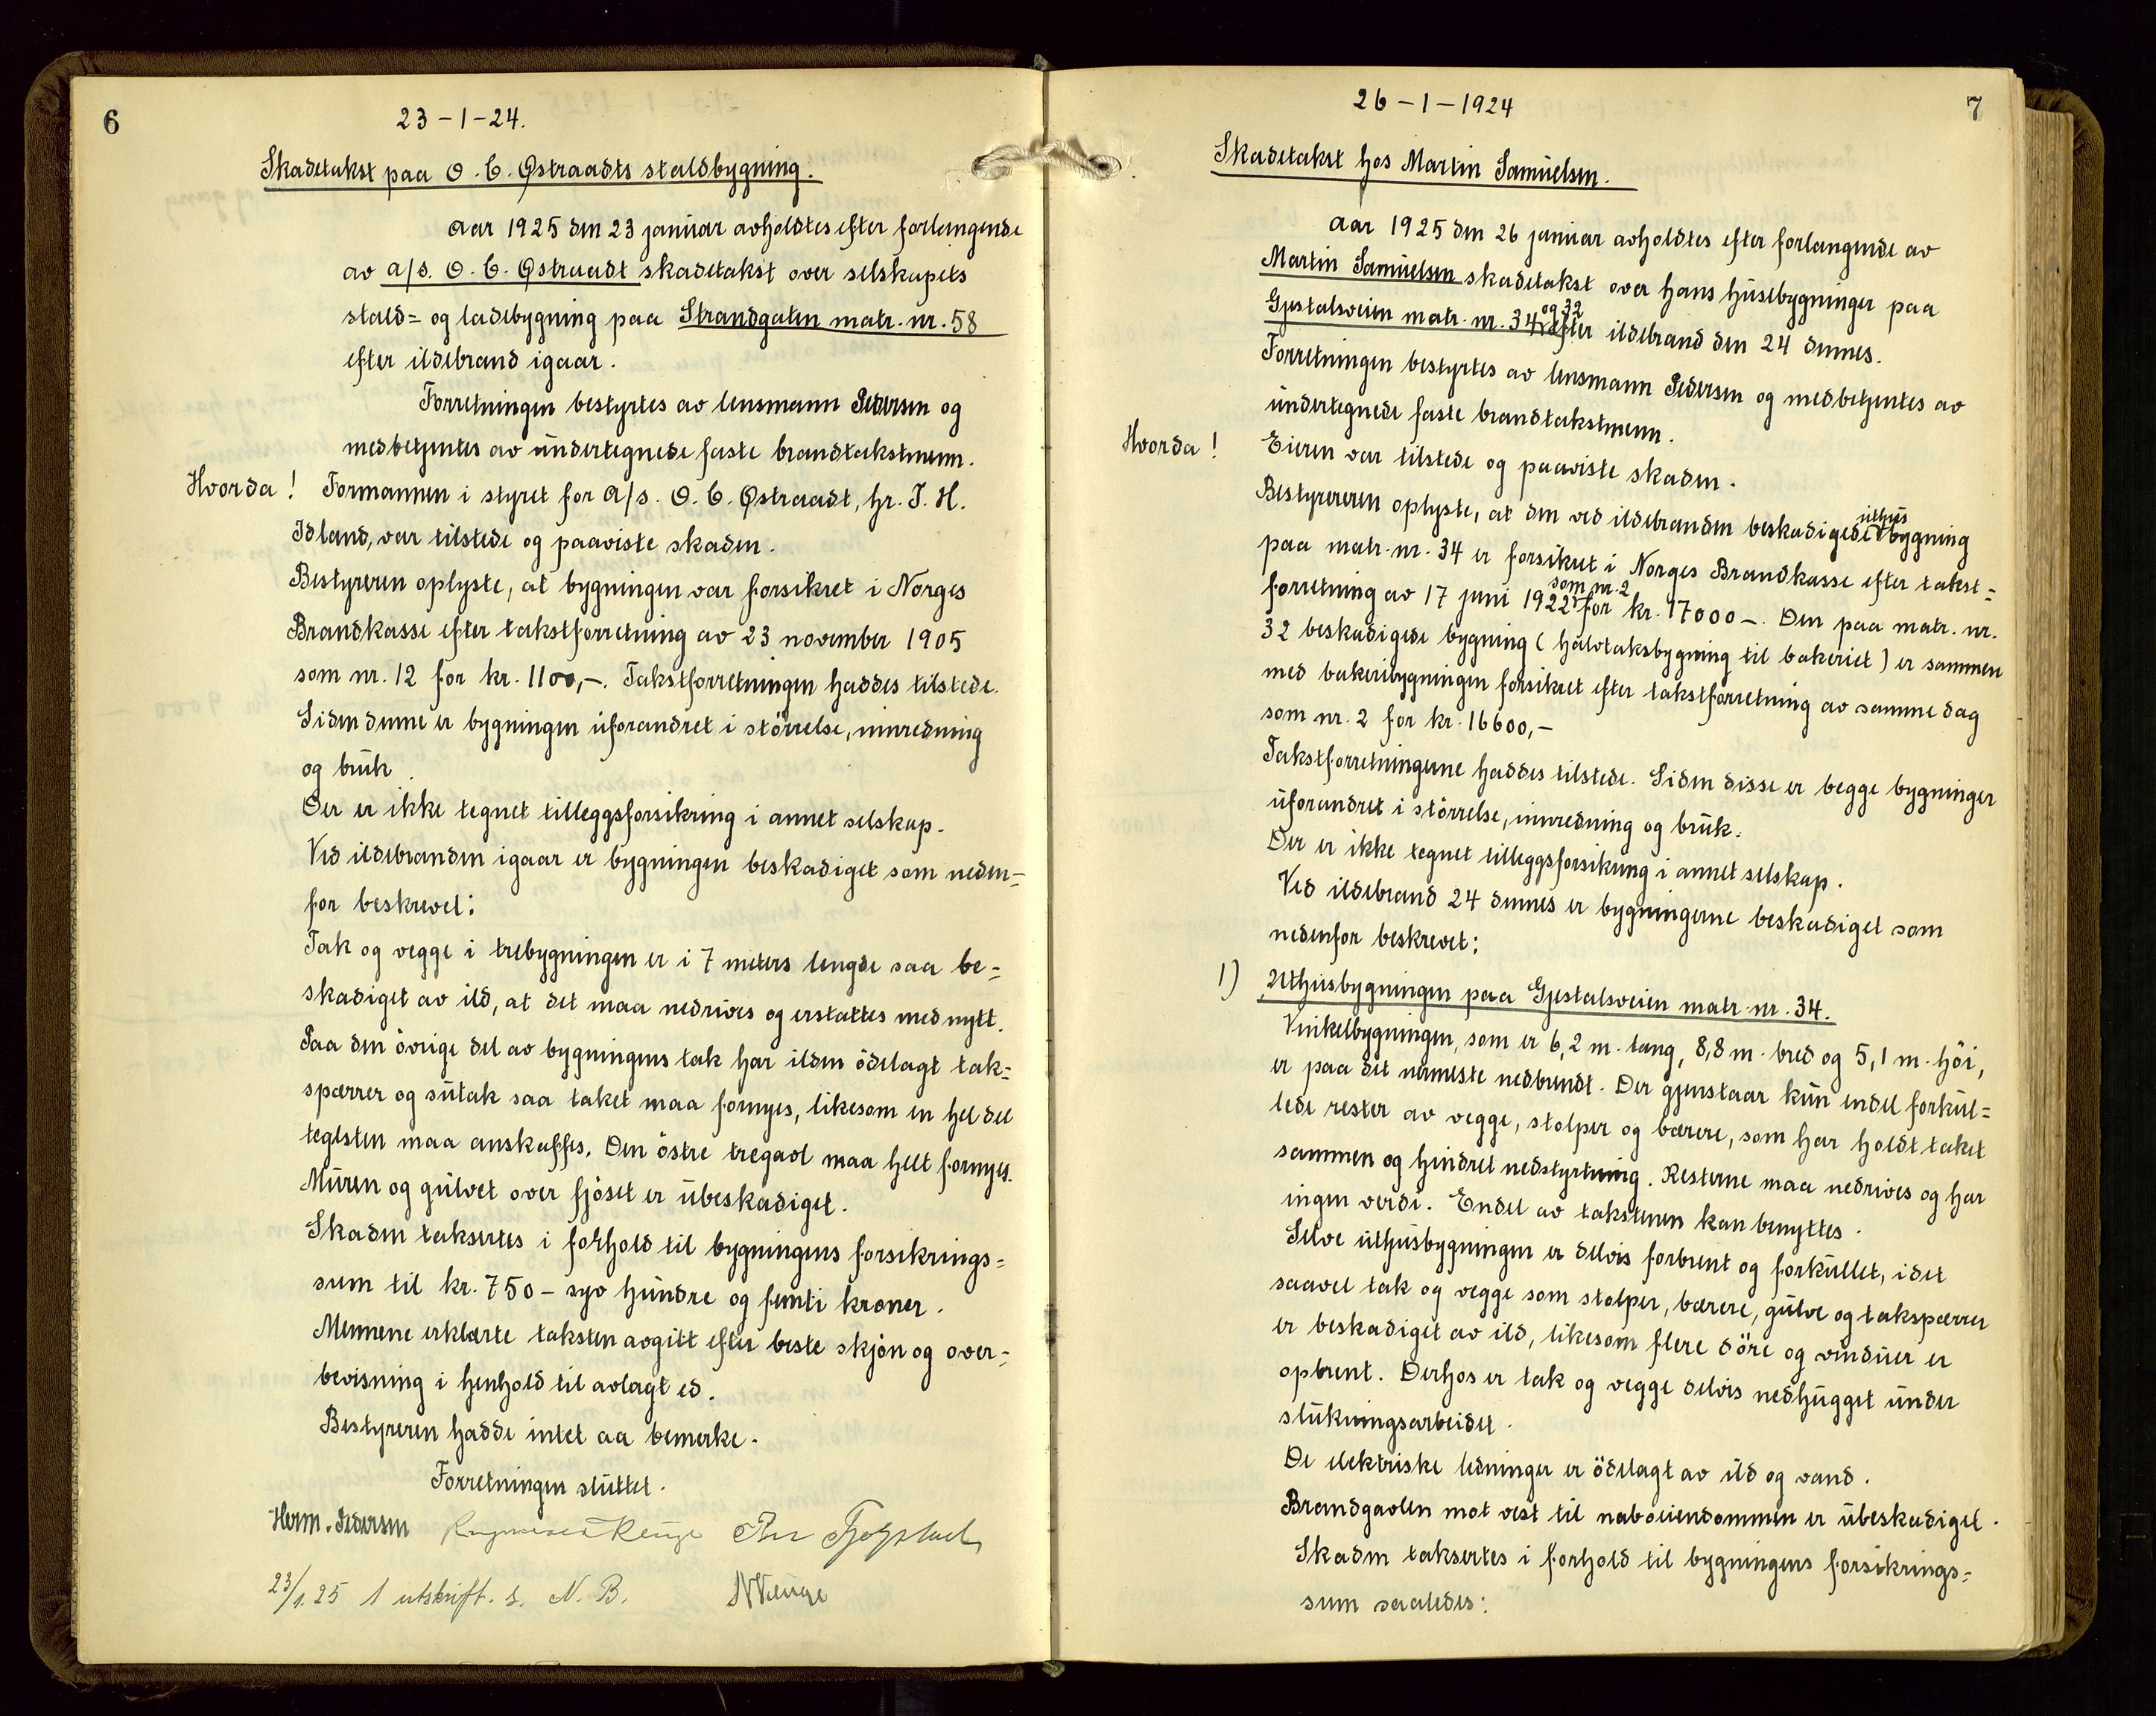 6
23-1-24.
Skadetakst paa O. C. Østraadts staldbygning.
Aar 1925 den 23 januar avholdtes efter forlangende
av A/s. O. C. Østraadt skadetakst over selskapets
stald= og ladebygning paa Strandgaten matr. nr. 58
efter ildebrand igaar.
Forretningen bestyrtes av lensmann Pedersen og
medbetjentes av undertegnede faste brandtakstmenn.
Hvorda! Formannen i styret for A/s. O. C. Østraadt, hr. T. H.
Idland, var tilstede og paaviste skaden.
Bestyreren oplyste, at bygningen var forsikret i Norges
Brandkasse efter takstforretning av 23 november 1905
som nr. 12 for kr. 1100,-. Takstforretningen haddes tilstede.
Siden denne er bygningen uforandret i störrelse, innredning
og bruk.
Der er ikke tegnet tilleggsforsikring i annet selskap.
Ved ildebranden igaar er bygningen beskadiget som neden=
for beskrevet:
Tak og vegge i trebygningen er i 7 meters lengde saa be=
skadiget av ild, at det maa nedrives og erstattes med nytt.
Paa den övrige del av bygningens tak har ilden ödelagt tak=
spærrer og sutak saa taket maa fornyes, likesom en hel del
teglsten maa anskaffes. Den östre tregavl maa helt fornyes.
Muren og gulvet over fjöset er ubeskadiget.
Skaden taksertes i forhold til bygningens forsikrings=
sum til kr. 750 - syv hundre og femti kroner.
Mennene erklærte taksten avgitt efter beste skjön og over=
bevisning i henhold til avlagt ed.
Bestyreren hadde intet aa bemerke.
Forretningen sluttet.
Herm. Pedersen
23/1.25 1 utskrift. s. N. B.
7
26-1-1924
Skadetakst hos Martin Samuelsen.
Aar 1925 den 26 januar avholdtes efter forlangende av
Martin Samuelsen skadetakst over hans husebygninger paa
Gjestalsveien matr. nr. 34 og 32 efter ildebrand den 24 dennes.
Forretningen bestyrtes av lensmann Pedersen og medbetjentes av
undertegnede faste brandtakstmenn.
Hvorda! Eieren var tilstede og paaviste skaden.
Bestyrereren oplyste, at den ved ildebranden beskadigede uthusbygning
paa matr. nr. 34 er forsikret i Norges Brandkasse efter takst=
forretning av 17 juni 1922 som nr. 2 for kr. 17000-. Den paa matr. nr.
32 beskadigede bygning (halvtaksbygning til bakeriet) er sammen
med bakeribygningen forsikret efter takstforretning av samme dag
som nr. 2 for kr. 16600,-
Takstforretningerne haddes tilstede. Siden disse er begge bygninger
uforandret i störrelse, innredning og bruk.
Der er ikke tegnet tilleggsforsikring i annet selskap.
Ved ildebrand 24 dennes er bygningerne beskadiget som
nedenfor beskrevet:
1) Uthusbygningen paa Gjestalsveien matr. nr. 34.
Vinkelbygningen, som er 6,2 m. lang, 8,8 m. bred og 5,1 m. höi,
er paa det nermeste nedbrendt. Der gjenstaar kun endel forkul=
lede rester av vegge, stolper og bærere, som har holdt taket
sammen og hindret nedstyrtning. Resterne maa nedrives og har
ingen verdi. Endel av takstenen kan benyttes.
Selve uthusbygningen er delvis forbrent og forkullet, idet
saavel tak og vegge som stolper, bærere, gulve og takspærrer
er beskadiget av ild, likesom flere döre og vinduer er
opbrent. Derhos er tak og vegge delvis nedhugget under
slukningsarbeidet.
De elektriske ledninger er ödelagt av ild og vand.
Brandgavlen mot vest til naboeiendommen er ubeskadiget.
Skaden taksertes i forhold til bygningens forsikrings=
sum saaledes: